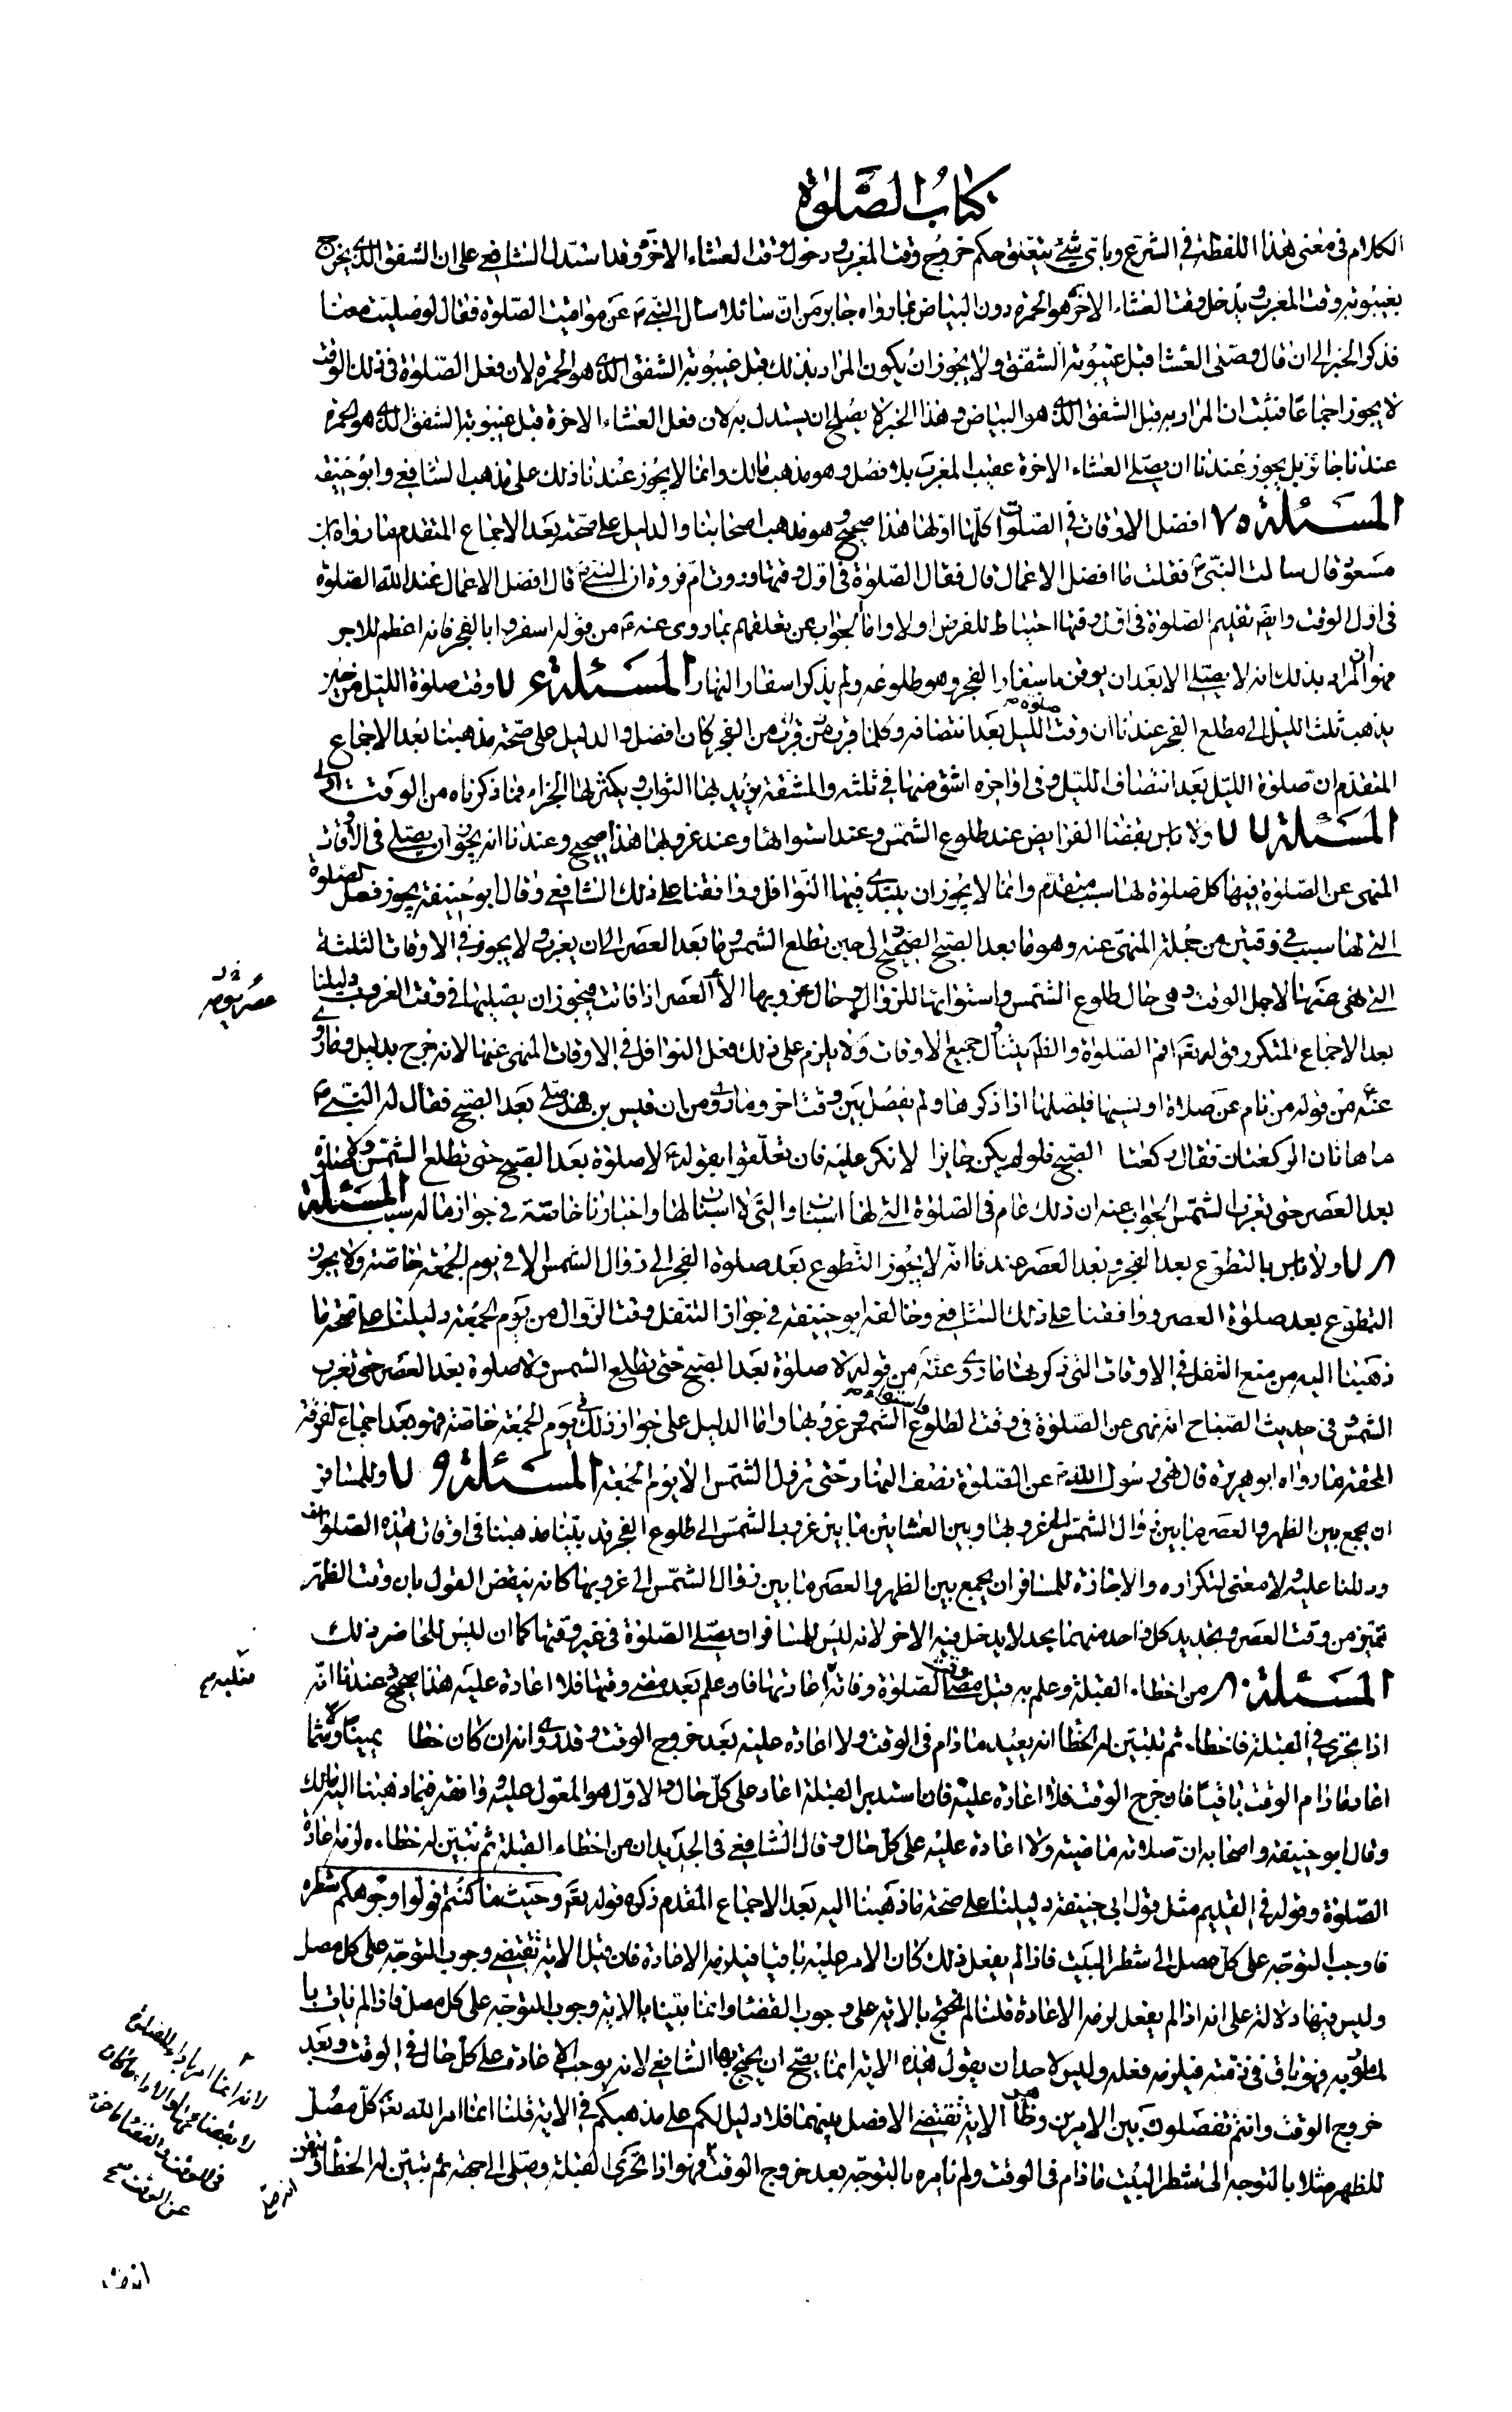 كتاب الصلوة
الكلام فى معنى هذا اللفظة فى الشرع وباى شئ يتعلق حكم خروج وقت المغرب ودخول وقت العشاء الاخرة وقد استدل الشافعى على ان الشفق الذى يخرج
بغيبوبته وقت المغرب ويدخل وقت العشاء الاخرة هو الحمرة دون البياض بما رواه جابر من ان سائلا سال النبى ص عن مواقيت الصلوة فقال لو صليت معنا
فذكر الخبر الى ان قال وصلى العشا قبل غيبوبة الشفق ولا يجوز ان يكون المراد بذلك قبل غيبوبة الشفق الذى هو الحمرة لان فعل الصلوة فى ذلك الوقت
لا يجوز اجماعا فثبت ان المراد به قبل الشفق الذى هو البياض وهذا الخبر لا يصلح ان يستدل به لان فعل العشاء الاخرة قبل غيبوبة الشفق الذى هو الحمرة
عندنا جائز بل يجوز عندنا ان يصلى العشاء الاخرة عقيب المغرب بلا فصل وهو مذهب مالك وانما لا يجوز عندنا ذلك على مذهب الشافعى وابو حنيفة
المسئلة ٧٥ افضل الاوقات فى الصلوات كلها اولها هذا صحيح وهو مذهب اصحابنا والدليل على صحته بعد الاجماع المتقدم ما رواه ابن
مسعود قال سالت النبى ص فقلت ما افضل الاعمال قال فقال الصلوة فى اول وقتها وروت ام فروة ان النبى ص قال افضل الاعمال عند الله الصلوة
فى اول الوقت وايضا تقديم الصلوة فى اول وقتها احتياط للفرض اولا واما الجواب عن تعلقهم بما روى عنه ع من قوله اسفروا بالفجر فانه اعظم للاجر
فهو ان المراد بذلك انه لا يصلى الا بعد ان يوقن باسفار الفجر وهو طلوعه ولم يذكر اسفار النهار المسئلة ٧٦ وقت صلوة الليل من حين
يذهب ثلث الليل الى مطلع الفجر عندنا ان وقت صلوة الليل بعد انتصافه وكلما قرب من قرب من الفجر كان افضل والدليل على صحة مذهبنا بعد الاجماع
المتقدم ان صلوة الليل بعد انتصاف الليل وفى اواخره اشق منها فى ثلثه والمشقة يزيد بها الثواب ويكثر لها الجزاء فما ذكرناه من الوقت اولى
المسئلة ٧٧ ولا باس بقضا الفرايض عند طلوع الشمس وعند استوائها وعند غروبها هذا صحيح وعندنا انه يجوز ان يصلى فى الاوقات
المنهى عن الصلوة فيها كل صلوة لها سبب متقدم وانما لا يجوز ان يبتدى فيها النوافل ووافقنا على ذلك الشافعى وقال ابو حنيفة يجوز فعل الصلوة
التى لها سبب فى وقتين من جملة المنهى عنه وهو ما بعد الصبح الى حين تطلع الشمس وما بعد العصر الى ان يغرب ولا يجوز فى الاوقات الثلثة
التى نهى عنها لاجل الوقت وهى حال طلوع الشمس واستوائها للزوال وحال غروبها الا العصر اذا فاتت فيجوز ان يصليها فى وقت الغروب دليلنا
عصر يومه
بعد الاجماع المتكرر قوله تعالى اقم الصلوة والظاهر يتناول جميع الاوقات ولا يلزم على ذلك فعل النوافل فى الاوقات المنهى عنها لانه خرج بدليل وما روى
عنه من قوله من نام عن صلاة او نسيها فليصلها اذا ذكرها ولم يفصل بين وقت اخر وما روى من ان قيس بن صلى بعد الصبح فقال له النبى ص
ما هاتان الركعتان فقال ركعتا الصبح فلو لم يكن جايزا لانكر عليه فان تعلقوا بقوله ع لا صلوة بعد الصبح حتى تطلع الشمس ولا صلوة
بعد العصر حتى تغرب الشمس الجواب عنه ان ذلك عام فى الصلوة التى لها اسباب والتى لا اسباب لها واخبارنا خاصة فى جواز ما له سبب المسئلة
٧٨ ولا باس بالتطوع بعد الفجر وبعد العصر عندنا انه لا يجوز التطوع بعد صلوة الفجر الى زوال الشمس الا فى يوم الجمعة خاصة ولا يجوز
التطوع بعد صلوة العصر ووافقنا على ذلك الشافعى وخالفه ابو حنيفة فى جواز التنفل وقت الزوال من يوم الجمعة دليلنا على صحة ما
ذهبنا اليه من منع التنفل فى الاوقات التى ذكرها ما روى عنه من قوله لا صلوة بعد الصبح حتى تطلع الشمس ولا صلوة بعد العصر حتى تغرب
الشمس فى حديث الصباح انه نهى عن الصلوة فى وقت الطلوع الشمس وغروبها واما الدليل على جواز ذلك فى يوم الجمعة خاصة فهو بعد اجماع الفرقة
المحقة ما رواه ابو هريرة قال نهى رسول الله ص عن الصلوة نصف النهار حتى تزول الشمس الا يوم الجمعة المسئلة ٧٩ وللمسافر
ان يجمع بين الظهر والعصر ما بين زوال الشمس الى غروبها وبين العشائين ما بين غروب الشمس الى طلوع الفجر قد بينا مذهبنا فى اوقات هذه الصلوات
ودللنا عليه ولا معنى لتكراره والاجازة للمسافر ان يجمع بين الظهر والعصر ما بين زوال الشمس الى غروبها كانه ينقض القول بان وقت الظهر
تميز من وقت العصر وتجديد كل واحد منهما بحد لا يدخل فيه الاخر لانه ليس للمسافر ان يصلى الصلوة فى غير وقتها كما ان ليس للحاضر ذلك
المسئلة ٨٠ من اخطاء القبلة وعلم به قبل مضى وقت الصلوة وفاته اعادتها فان علم بعد مضى وقتها فلا اعادة عليه هذا صحيح وعندنا انه
فعليه صح
اذا تحرى فى القبلة فاخطاء ثم تبين له الخطا انه يعيد ما دام فى الوقت ولا اعادة عليه بعد خروج الوقت وقد روى انه ان كان خطا يمينا وشمالا
اعاد ما دام الوقت باقيا فان خرج الوقت فلا اعادة عليه فان استدبر القبلة اعاد على كل حال والاول هو المعول عليه ووافقه فيما ذهبنا اليه مالك
وقال ابو حنيفة واصحابه ان صلاته ماضية ولا اعادة عليه على كل حال وقال الشافعى فى الجديد ان من اخطاء القبلة ثم تبين له خطاءه لزمه اعادة
الصلوة وقوله فى القديم مثل قول ابى حنيفة دليلنا على صحة ما ذهبنا اليه بعد الاجماع المقدم ذكره قوله تعالى وحيث ما كنتم فولوا وجوهكم شطره
فاوجب التوجه على كل مصل الى شطر البيت فاذا لم يفعل ذلك كان الامر عليه باقيا فيلزمه الاعادة فان قيل الاية تقتضى وجوب التوجه على كل مصل
وليس فيها دلالة على انه اذا لم يفعل لزمه الاعادة قلنا لم نحتج بالاية على وجوب القضا وانما بينا بالاية وجوب التوجه على كل مصل فاذا لم يات با
لمطلوبه فهو باق فى ذمته فيلزمه فعله وليس لاحد ان يقول هذه الاية انما يصح ان يحتج بها الشافعى لانه يوجب الاعادة على كل حال فى الوقت وبعد
خروج الوقت وانتم تفصلون بين الامرين وظاهر الاية تقتضى الا فصل بينهما فلا دليل لكم على مذهبكم فى الاية قلنا انما امر الله تعالى كل مصل
للظهر مثلا بالتوجه الى شطر البيت ما دام فى الوقت ولم يامره بالتوجه بعد خروج الوقت فهو اذا تحرى القبلة وصلى الى جهة ثم تبين له الخطا وتيقن
انه صلى